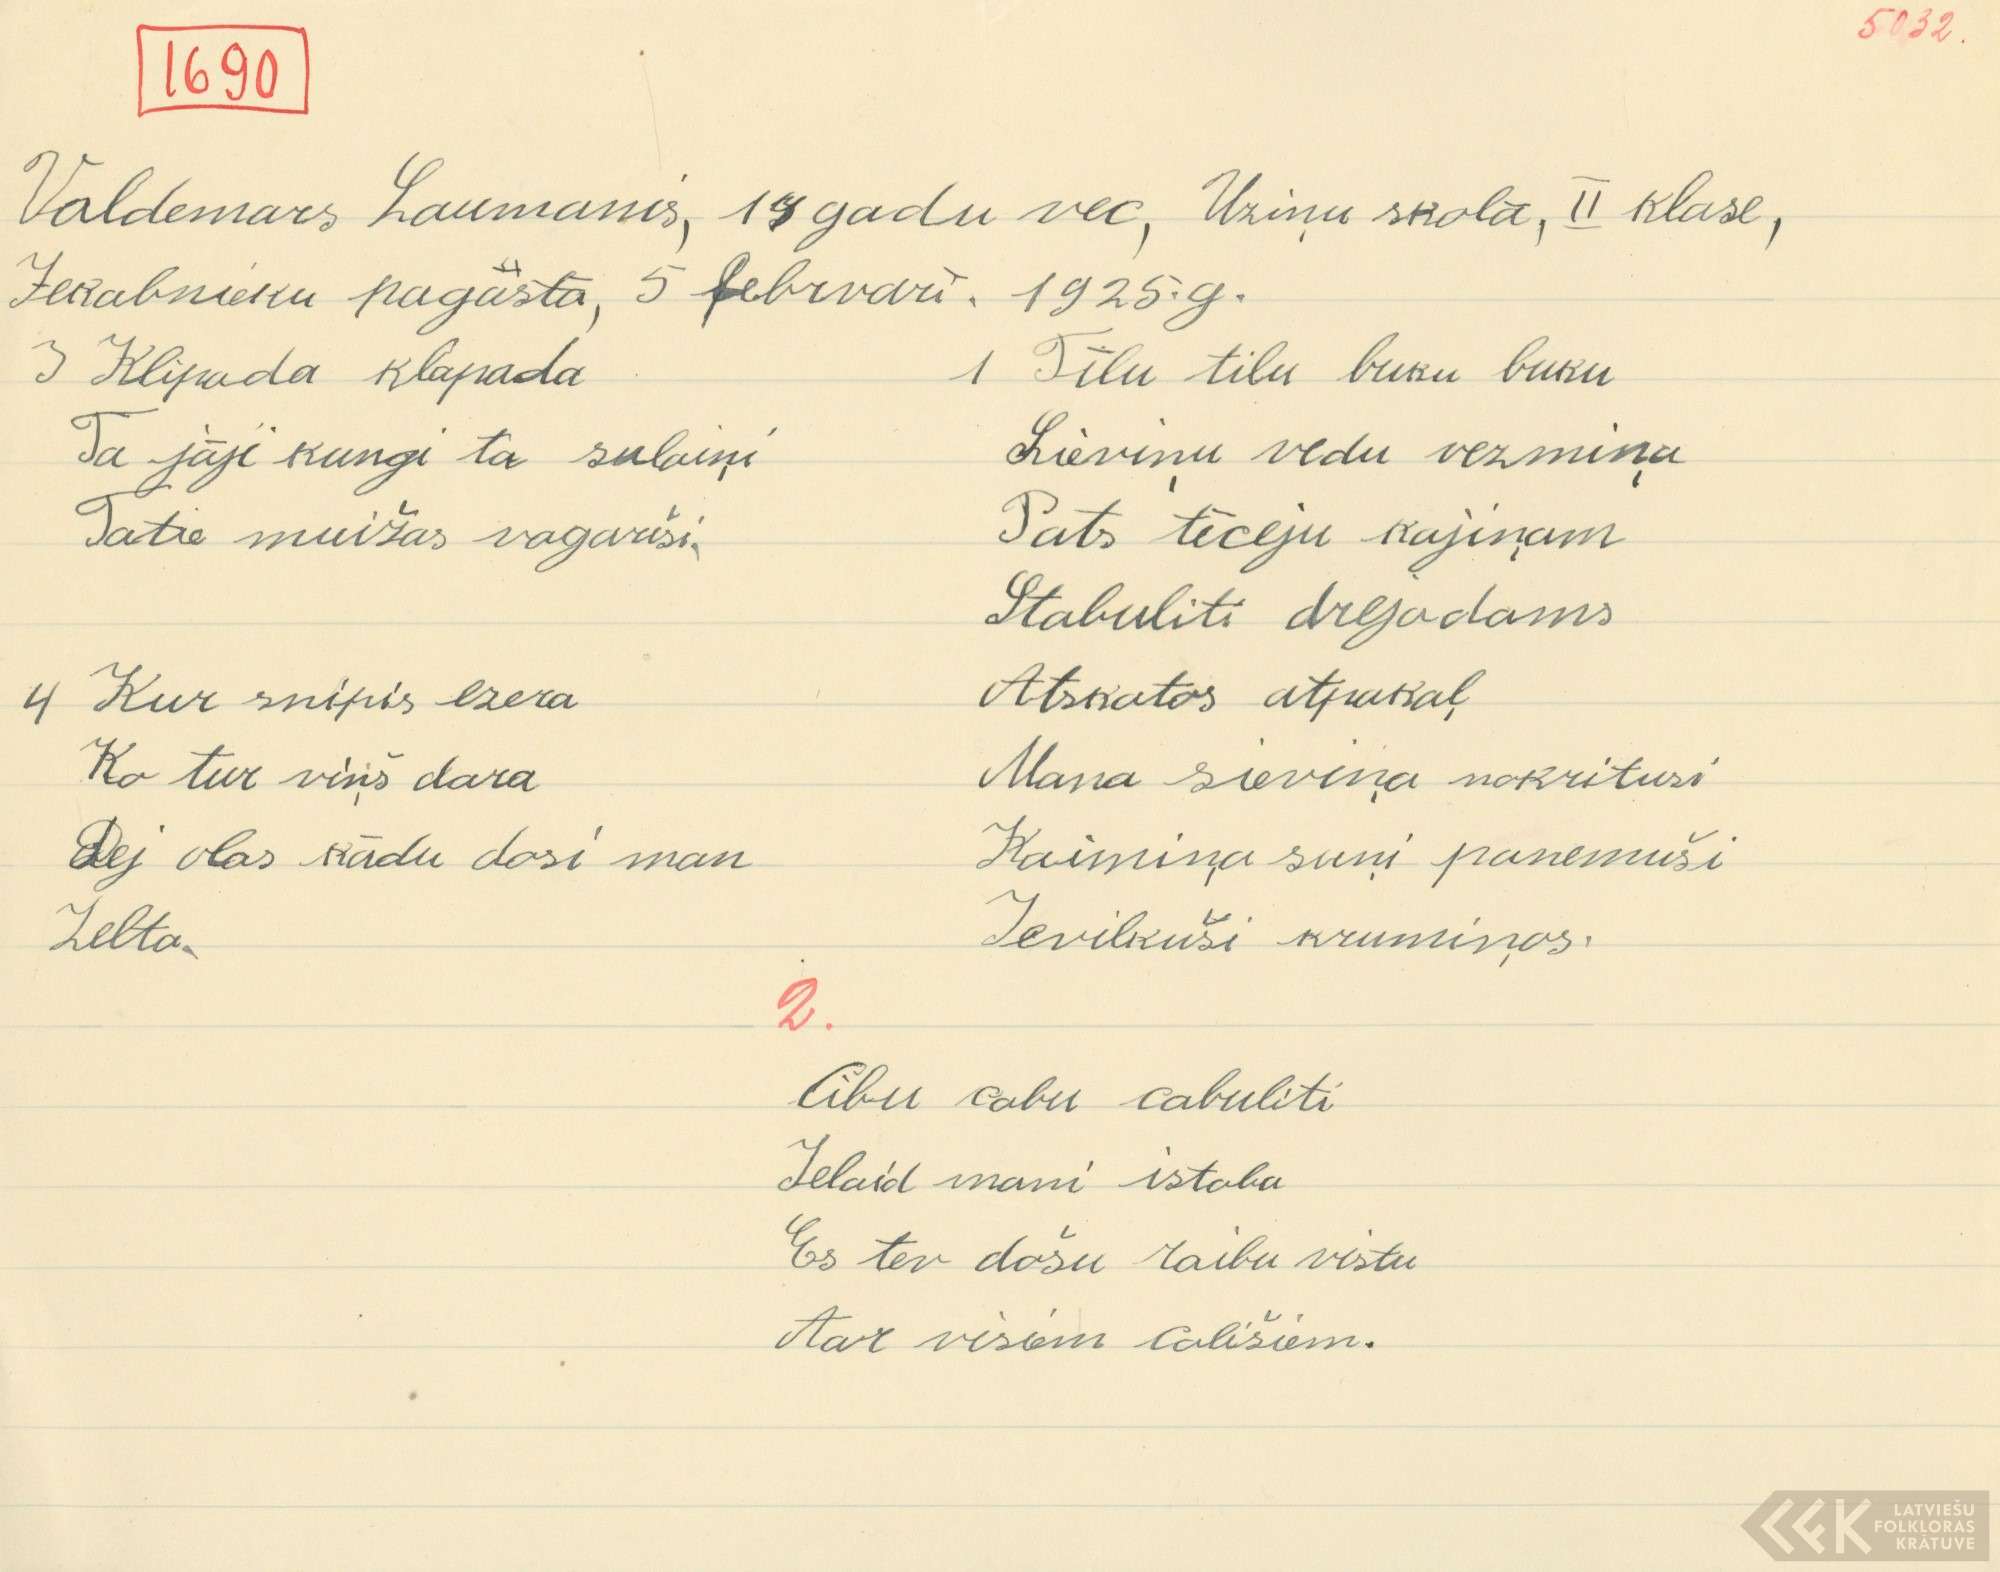 1690
5032.
Valdemars Laumanis, gadu vec, Uziņu skolā, II klase,
Jekabnieku pagāsta, 5 februarī. 1925.g.
3 Klipada klapada
Ta jāji kungi ta sulaiņi
Tatie muižas vagariši.
4 Kur snipis ezera
Ko tur viņš dara
Dej olas kādu dosi man
Zelta.
1 Tīlu tilu buku buku
Sieviņu vedu vezmiņa
Pats tēceju kajiņam
Stabuliti drejadams
Atskatos atpakaļ
Mana sieviņa nokritusi
Kaimiņa suņi panemuši
Ievilkuši krumiņos.
2.
Cibu cabu cabuliti
Ielaid mani istaba
Es tev došu raibu vistu
Aar visiem cališiem.
LATVIEŠU
FOLKLORAS
KRĀTUVE